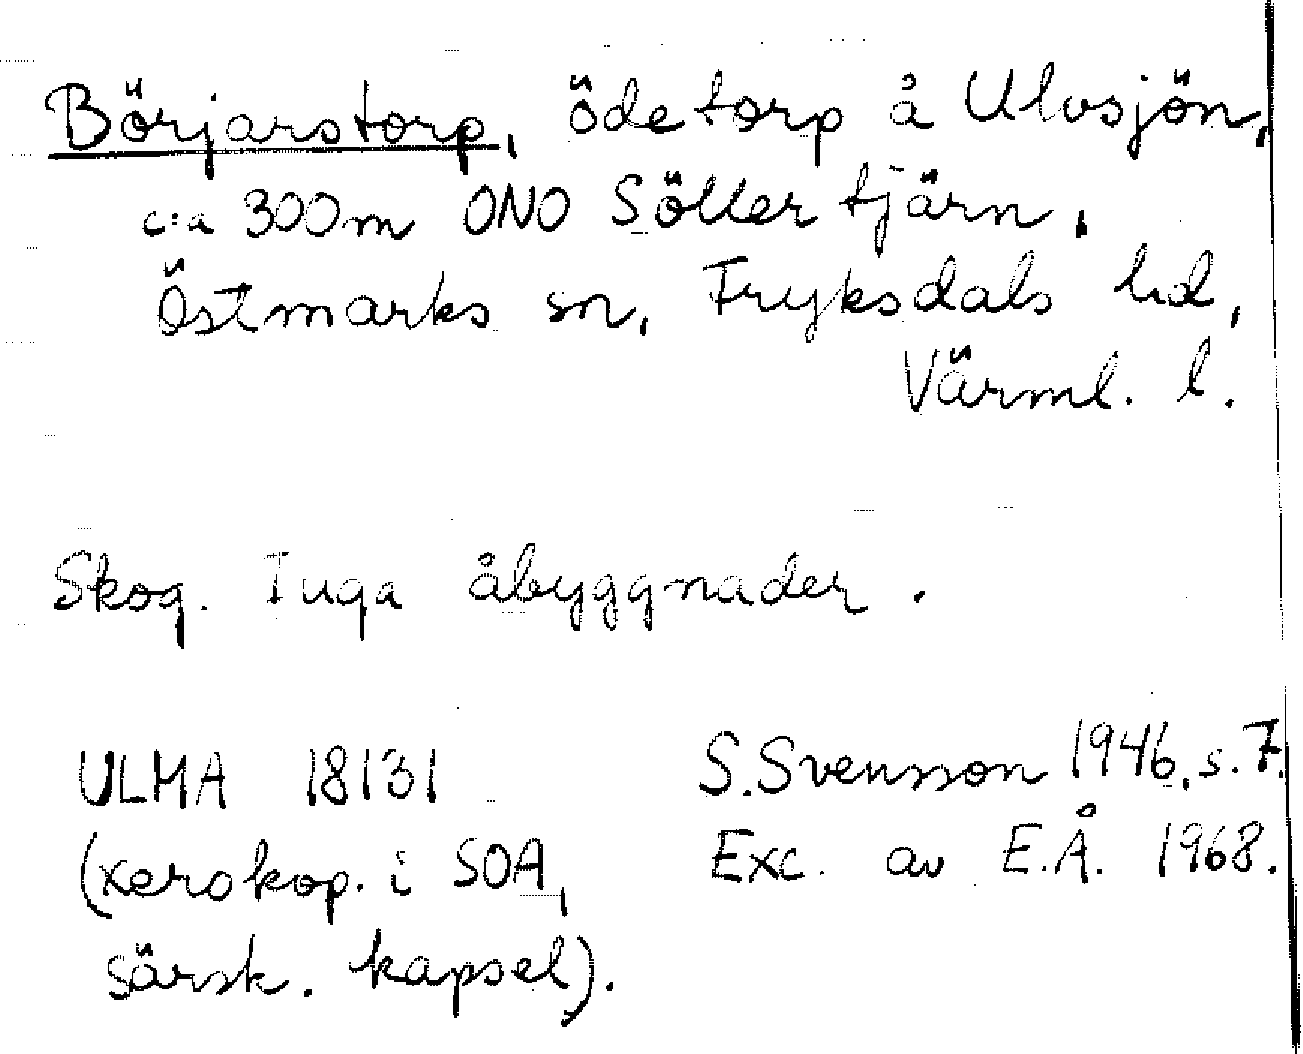 Börjarstorp, ödetorp å Ulvsjön,
c:a 300m ONO Söllertjärn,
Östmarks sn, Fryksdals hd,
Värml. l.
Skog. Inga åbyggnader.
ULMA 18131 S.Svensson 1946, s. 7.
(xerokop. i SOA, Exc. av E.Å. 1968.
särsk. kapsel).